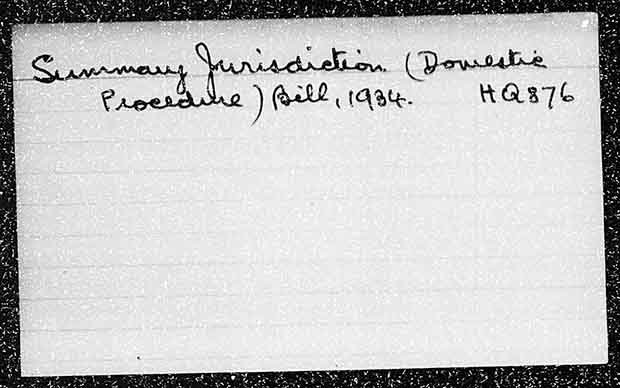 Summary Jurisdiction (Domestic
Procedure) Bill, 1934. HQ376